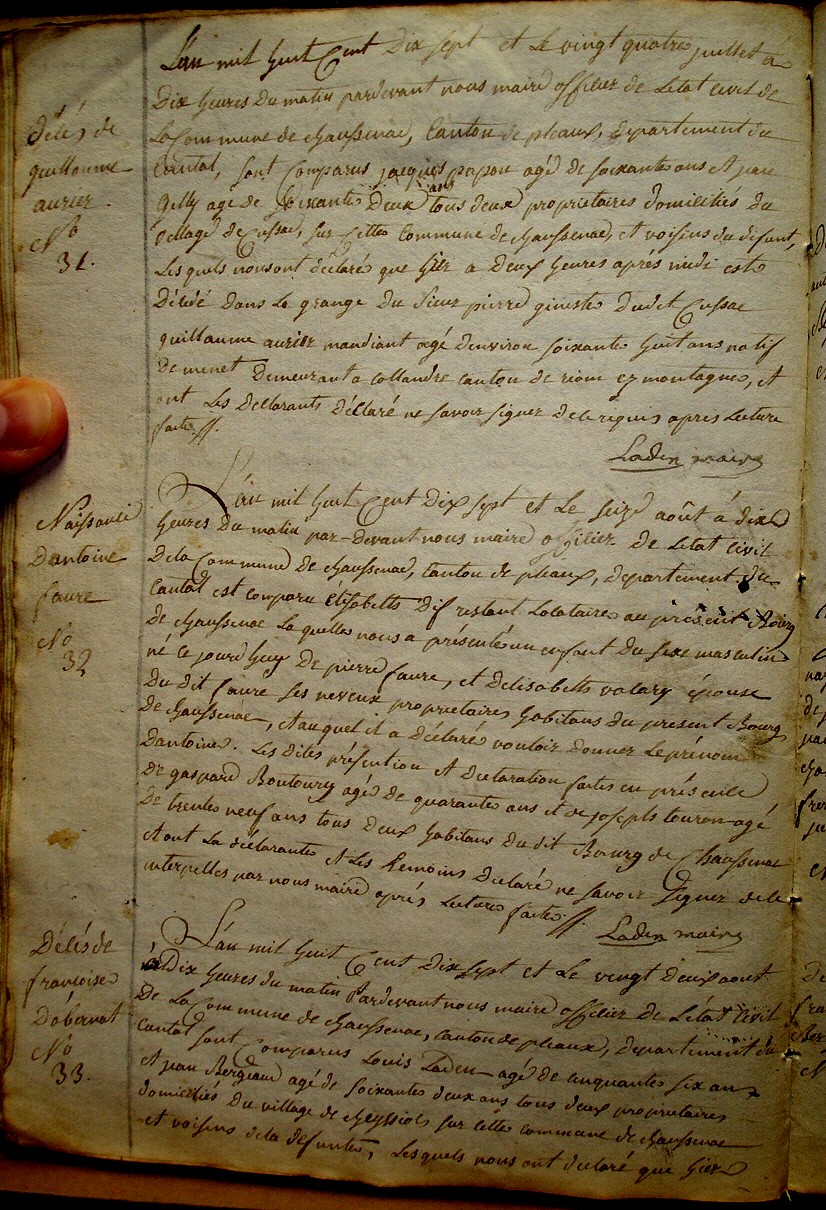 L'an mil huit Cent Dix sept et le vingt quatre juillet à
Dix heures du matin pardevant nous maire officier de letat civil de
La Commune de chaussenac, Canton de pleaux, departement du
Cantal, sont Comparus jacques papon agé de soixante ans et jean
Gilly agé de soixante Deux ans tous deux proprietaires domiciliés du
village de Cussac, sur cette Commune de chaussenac, et voisins du defunt,
Lesquels nous ont déclaré que hier a Deux heures aprés midi est
Décédé dans la grange du sieur pierre gineste dudit Cussac
guillaume aurier mandiant agé denviron soixante huit ans natif
De menet Demeurant a collandre canton de riom ez montagne, et
ont Les Déclarants déclaré ne savoir signer de ce requis apres Lecture
faite //.
Laden maire
Décés de
guillaume
aurier.
No
31.
L'an mil huit Cent Dix sept et le seize août à dix
heures du matin par-devant nous maire officier de letat civil
de la Commune de chaussenac, canton de pleaux, departement du
Cantal est comparu Élisabeth restant Locataire au présent Bourg
de chaussenac Laquelle nous a présenté un enfant du sexe masculin
né ce jourdhuy De pierre faure, et delisabeth valary épouse
du dit faure ses neveux proprietaires habitans du present Bourg
de chaussenac, et auquel il a déclaré vouloir donner le prénom
Dantoine. Les dites présention et declaration faites en présence
De gaspard Boutoury agé de quarante ans et de joseph touron agé
de trente neuf ans tous Deux habitans du dit Bourg de Chaussenac
et ont La déclarante et Les temoins déclaré ne savoir signer de ce
interpelles par nous maire aprés Lecture faite. //.
Ladin maire
Naissance
Dantoine
faure
No
32
L'an mil huit Cent Dix sept et le vingt Deux aout
à Dix heures du matin Pardevant nous maire officier de Létat Civil
De La Commune de chaussenac, canton de pleaux, departement du
Cantal sont Comparus Louis Laden agé de cinquante six ans
et jean Bergeaud agé de soixante deux ans tous deux proprietaires
domiciliés du village de cheyssiols sur cette commune de chaussenac
et voisins de la defunte, Lesquels nous ont declaré que hier
Décés de
francoise
Dabernat
No
33.